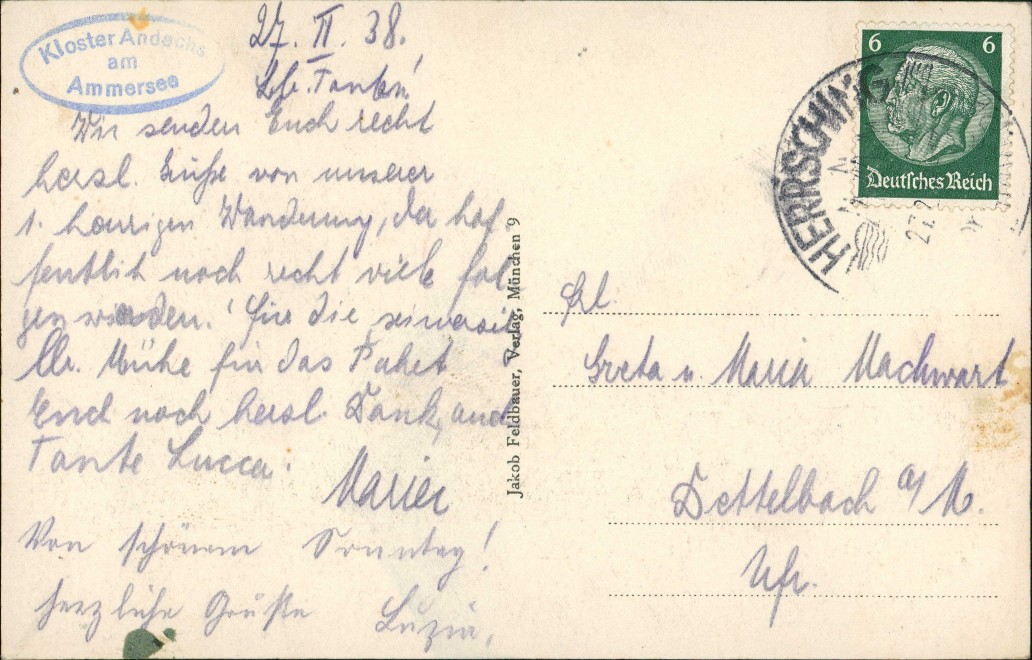 Kloster Andechs
am
Ammersee
27. II. 38.
Lb. Tanten!
Wir senden Euch recht
herzl. Grüße von unserer
1. heurigen Wanderung, da hof
fentlich noch recht viele fol
gen werden. Für die
Mühe für das Paket
Euch noch herzl. Dank, auch
Tante Lucca.
Maria
Von schönem Sonntag!
herzliche Grüße Luzia.
Jakob Feldbauer, Verlag, München 9
6 6
Deutsches Reich
HERRSCHING
Frl.
Greta u. Maria Machwart
Dettelbach a/M.
Ufr.